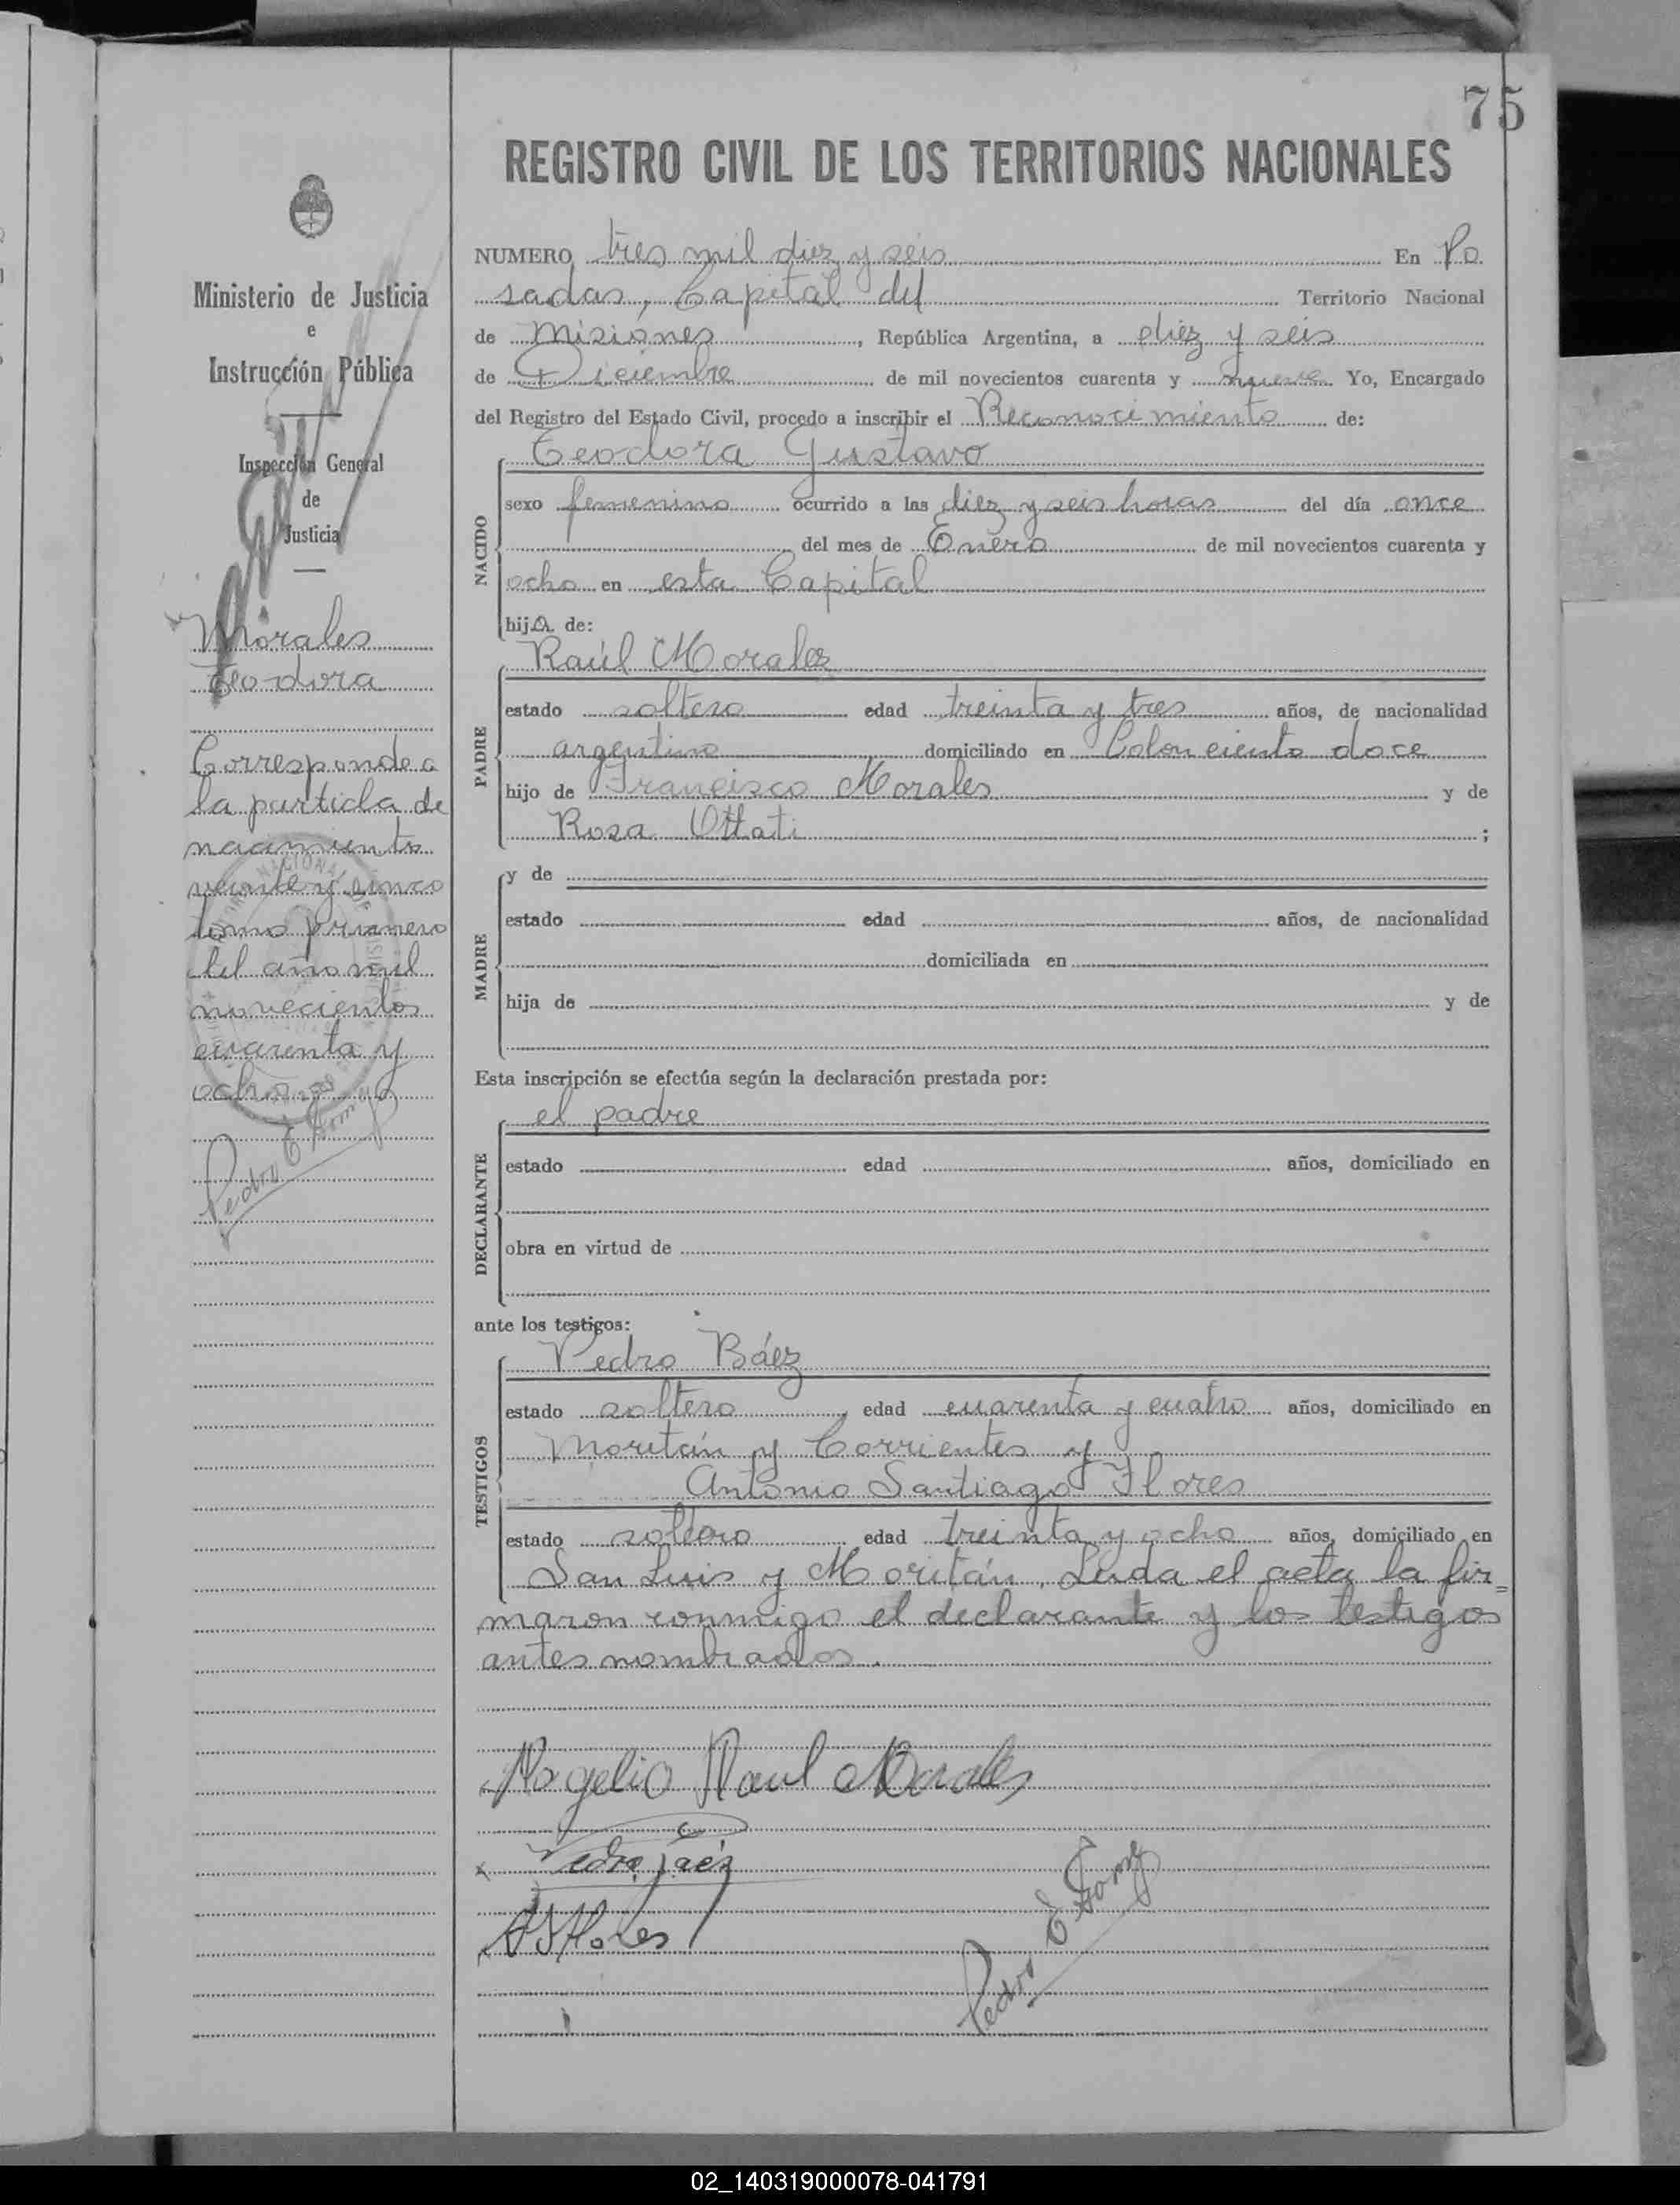 75
REGISTRO CIVIL DE LOS TERRITORIOS NACIONALES
NUMERO tres mil diez y seis En Po
sadas, Capital del Territorio Nacional
de Misiones, República Argentina, a diez y seis
de Diciembre de mil novecientos cuarenta y nueve Yo, Encargado
del Registro del Estado Civil, procedo a inscribir el Reconocimiento de:
Teodora Gustavo
NACIDO
sexo femenino ocurrido a las diez y seis horas del día once
del mes de Enero de mil novecientos cuarenta y
ocho en esta Capital
hija de:
Raúl Morales
PADRE
estado soltero edad treinta y tres años, de nacionalidad
argentino domiciliado en Colon ciento doce
hijo de Francisco Morales y de
Rosa Ottati ;
MADRE
y de
estado edad años, de nacionalidad
domiciliada en
hija de y de
Esta inscripción se efectúa según la declaración prestada por:
el padre
DECLARANTE
estado edad años, domiciliado en
obra en virtud de
ante los testigos:
Pedro Báez
TESTIGOS
estado soltero edad cuarenta y cuatro años, domiciliado en
Moritán y Corrientes y
Antonio Santiago Flores
estado soltero edad treinta y ocho años, domiciliado en
San Luis y Moritán. Leida el acta la fir=
maron conmigo el declarante y los testigos
antes nombrados.
Rogelio Raul Morales
Pedro Báez
A S Flores
Pedro E Gomez
Ministerio de Justicia
e
Instrucción Pública
Inspección General
de
Justicia
Morales
Teodora
Corresponde a
la partida de
nacimiento
veinte y cinco
tomo primero
del año mil
novecientos
cuarenta y
ocho
Pedro E Gomez
02_140319000078-041791